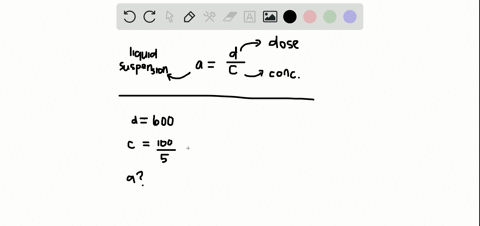 liquid suspension a = d/c dose
conc.
d = 600
c = 100/5
a?